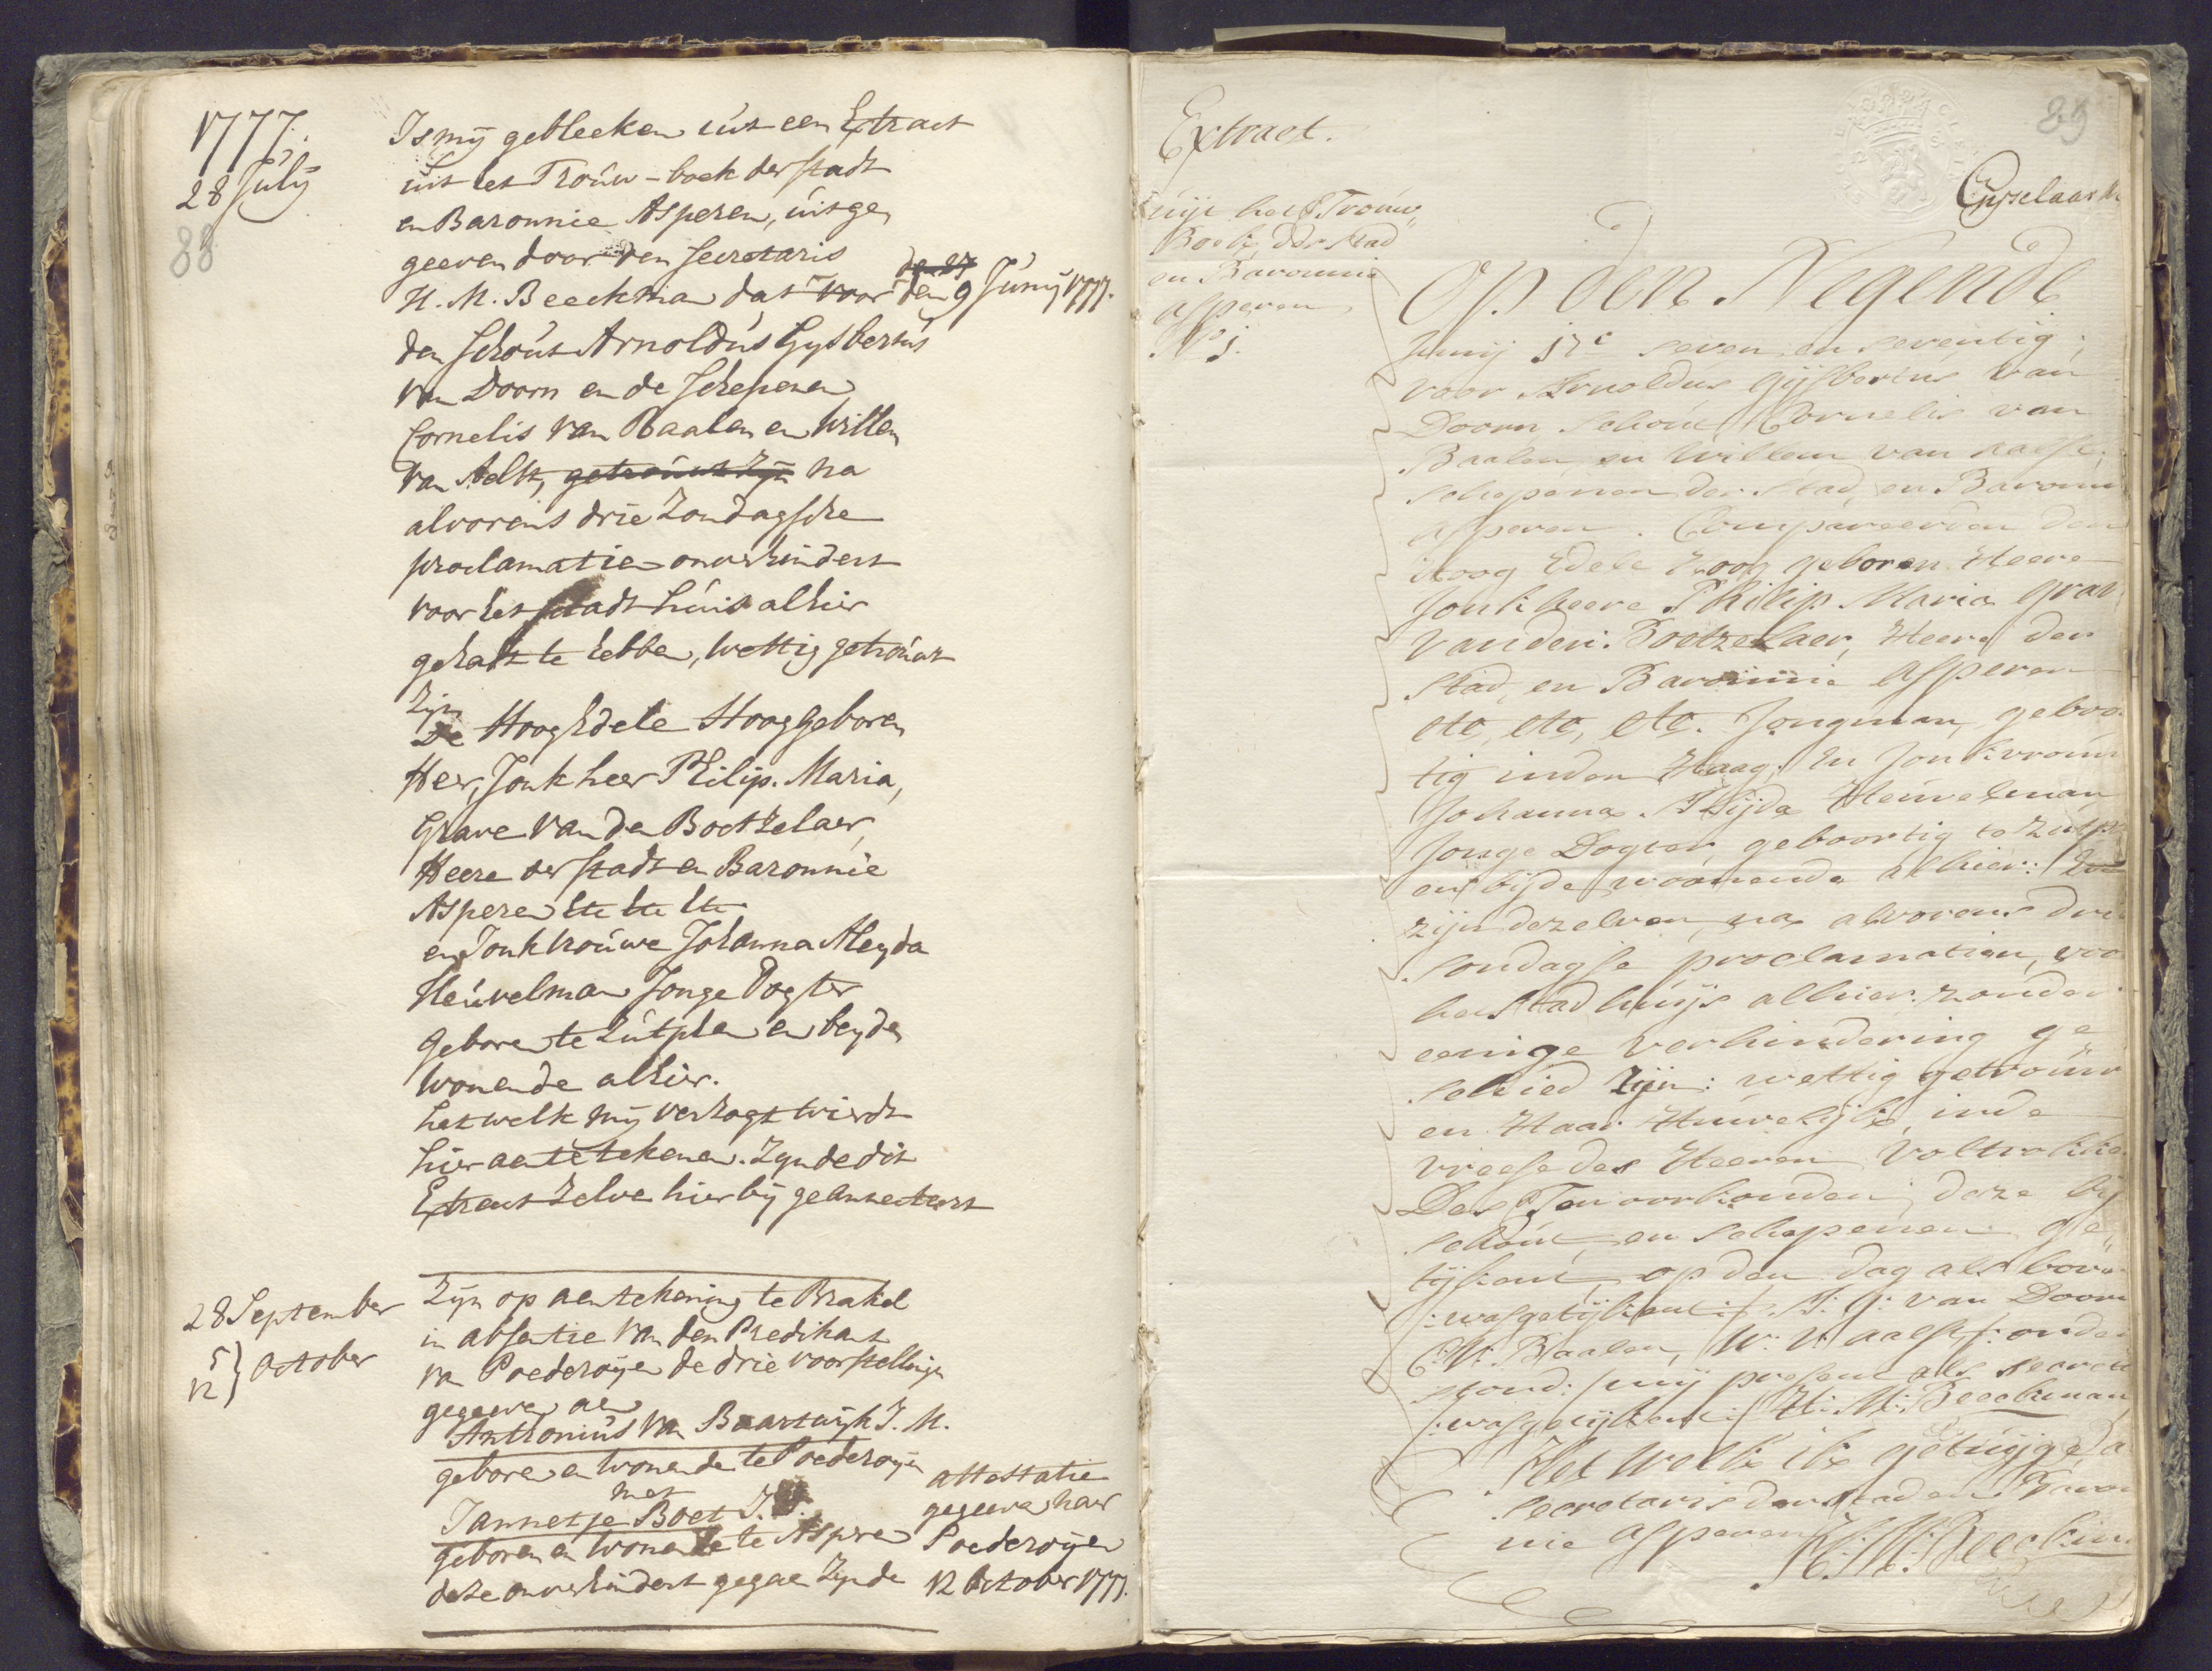 1777.
28 July
88
Is mÿ gebleeken uit een Extract
uit het Trouw-boek der stadt
en Baronnie Asperen, uitge
geeven door den secretaris
H. M. Beeckman dat voor den 9 Junÿ 1777.
den 27
den schout Arnoldus Gysbertus
van Doorn en de schepenen
Cornelis van Baalen en Willem
van Aelst, getrouwt zÿn na
alvorens drie Zondagsche
proclamatien onverhindert
voor het stadt huis alhier
gehadt te hebben, wettig getrouwt
zÿn
De HoogEdele Hooggeboren
Heer, Jonkheer Philip. Maria,
Grave van den Boetzelaer,
Heere der stadt en Baronnie
Asperen etc etc etc
en Jonkvrouwe Johanna Aleyda
Heuvelman Jonge Dogter
geboren te Zutphen en beyde
wonende alhier.
het welk mÿ verzogt wierdt
hier aen te tekenen. Zynde dit
Extract zelve hier bÿ geannecteert
28 September
5 }
12 } October
Zÿn op aentekening te Brakel
in absentie van den Predikant
van Poederoÿen de drie voorstellinge
gegeven aen
Anthonius van Baartwÿk J. M.
geboren en wonende te Poederoÿen
met
Jannetje Boet J. D.
geboren en wonende te Asperen
deze onverhindert gegaen zynde
attestatie
gegeven naer
Poederoÿen
12 October 1777.
89
Extract.
uijt het Trouw
Boek der Stad
en Baronnie
Asperen
N 1.
Op den Negende
Junij 17c seven en seventig;
voor Arnoldus Gijsbertus van
Doorn Schout Cornelis van
Baalen en Willem van Aalst,
schepenen der Stad, en Baronn
Asperen. Compareerden den
Hoog Edele Hoog geboren Heere
Jonkheere Philip Maria Grav
van den Boetzelaer, Heere der
Stad, en Baronnie Asperen
etc, etc, etc. Jongman, geboo
tig inden Haag. En Jonkvrouw
Johanna Alijda Heuvelman
Jonge Dogter geboortig te Zutp
en bijde woonende alhier: En
zijn dezelven, na alvorens drie
sondagse proclamatien, voo
het Stadhuijs alhier zonder
eenige verhindering ge
schied zijn: wettig getrouw
en Haar Huwelijk, inde
vreese des Heeren Voltrokke
Des Ten oorkonden, deze bij
schout, en schepenen ge
tijkent, op den dag als bove
/:was getijkent:/ A: G: van Doorn
C: V: Baalen, W: V: Aalst /: onder
stond:/ mij present als secret
/:was getijkent:/ H: M: Beeckman
Het welk ik getuijge, a
secretaris der Stad en Baron
nie Asperen
H: M: Beeckm